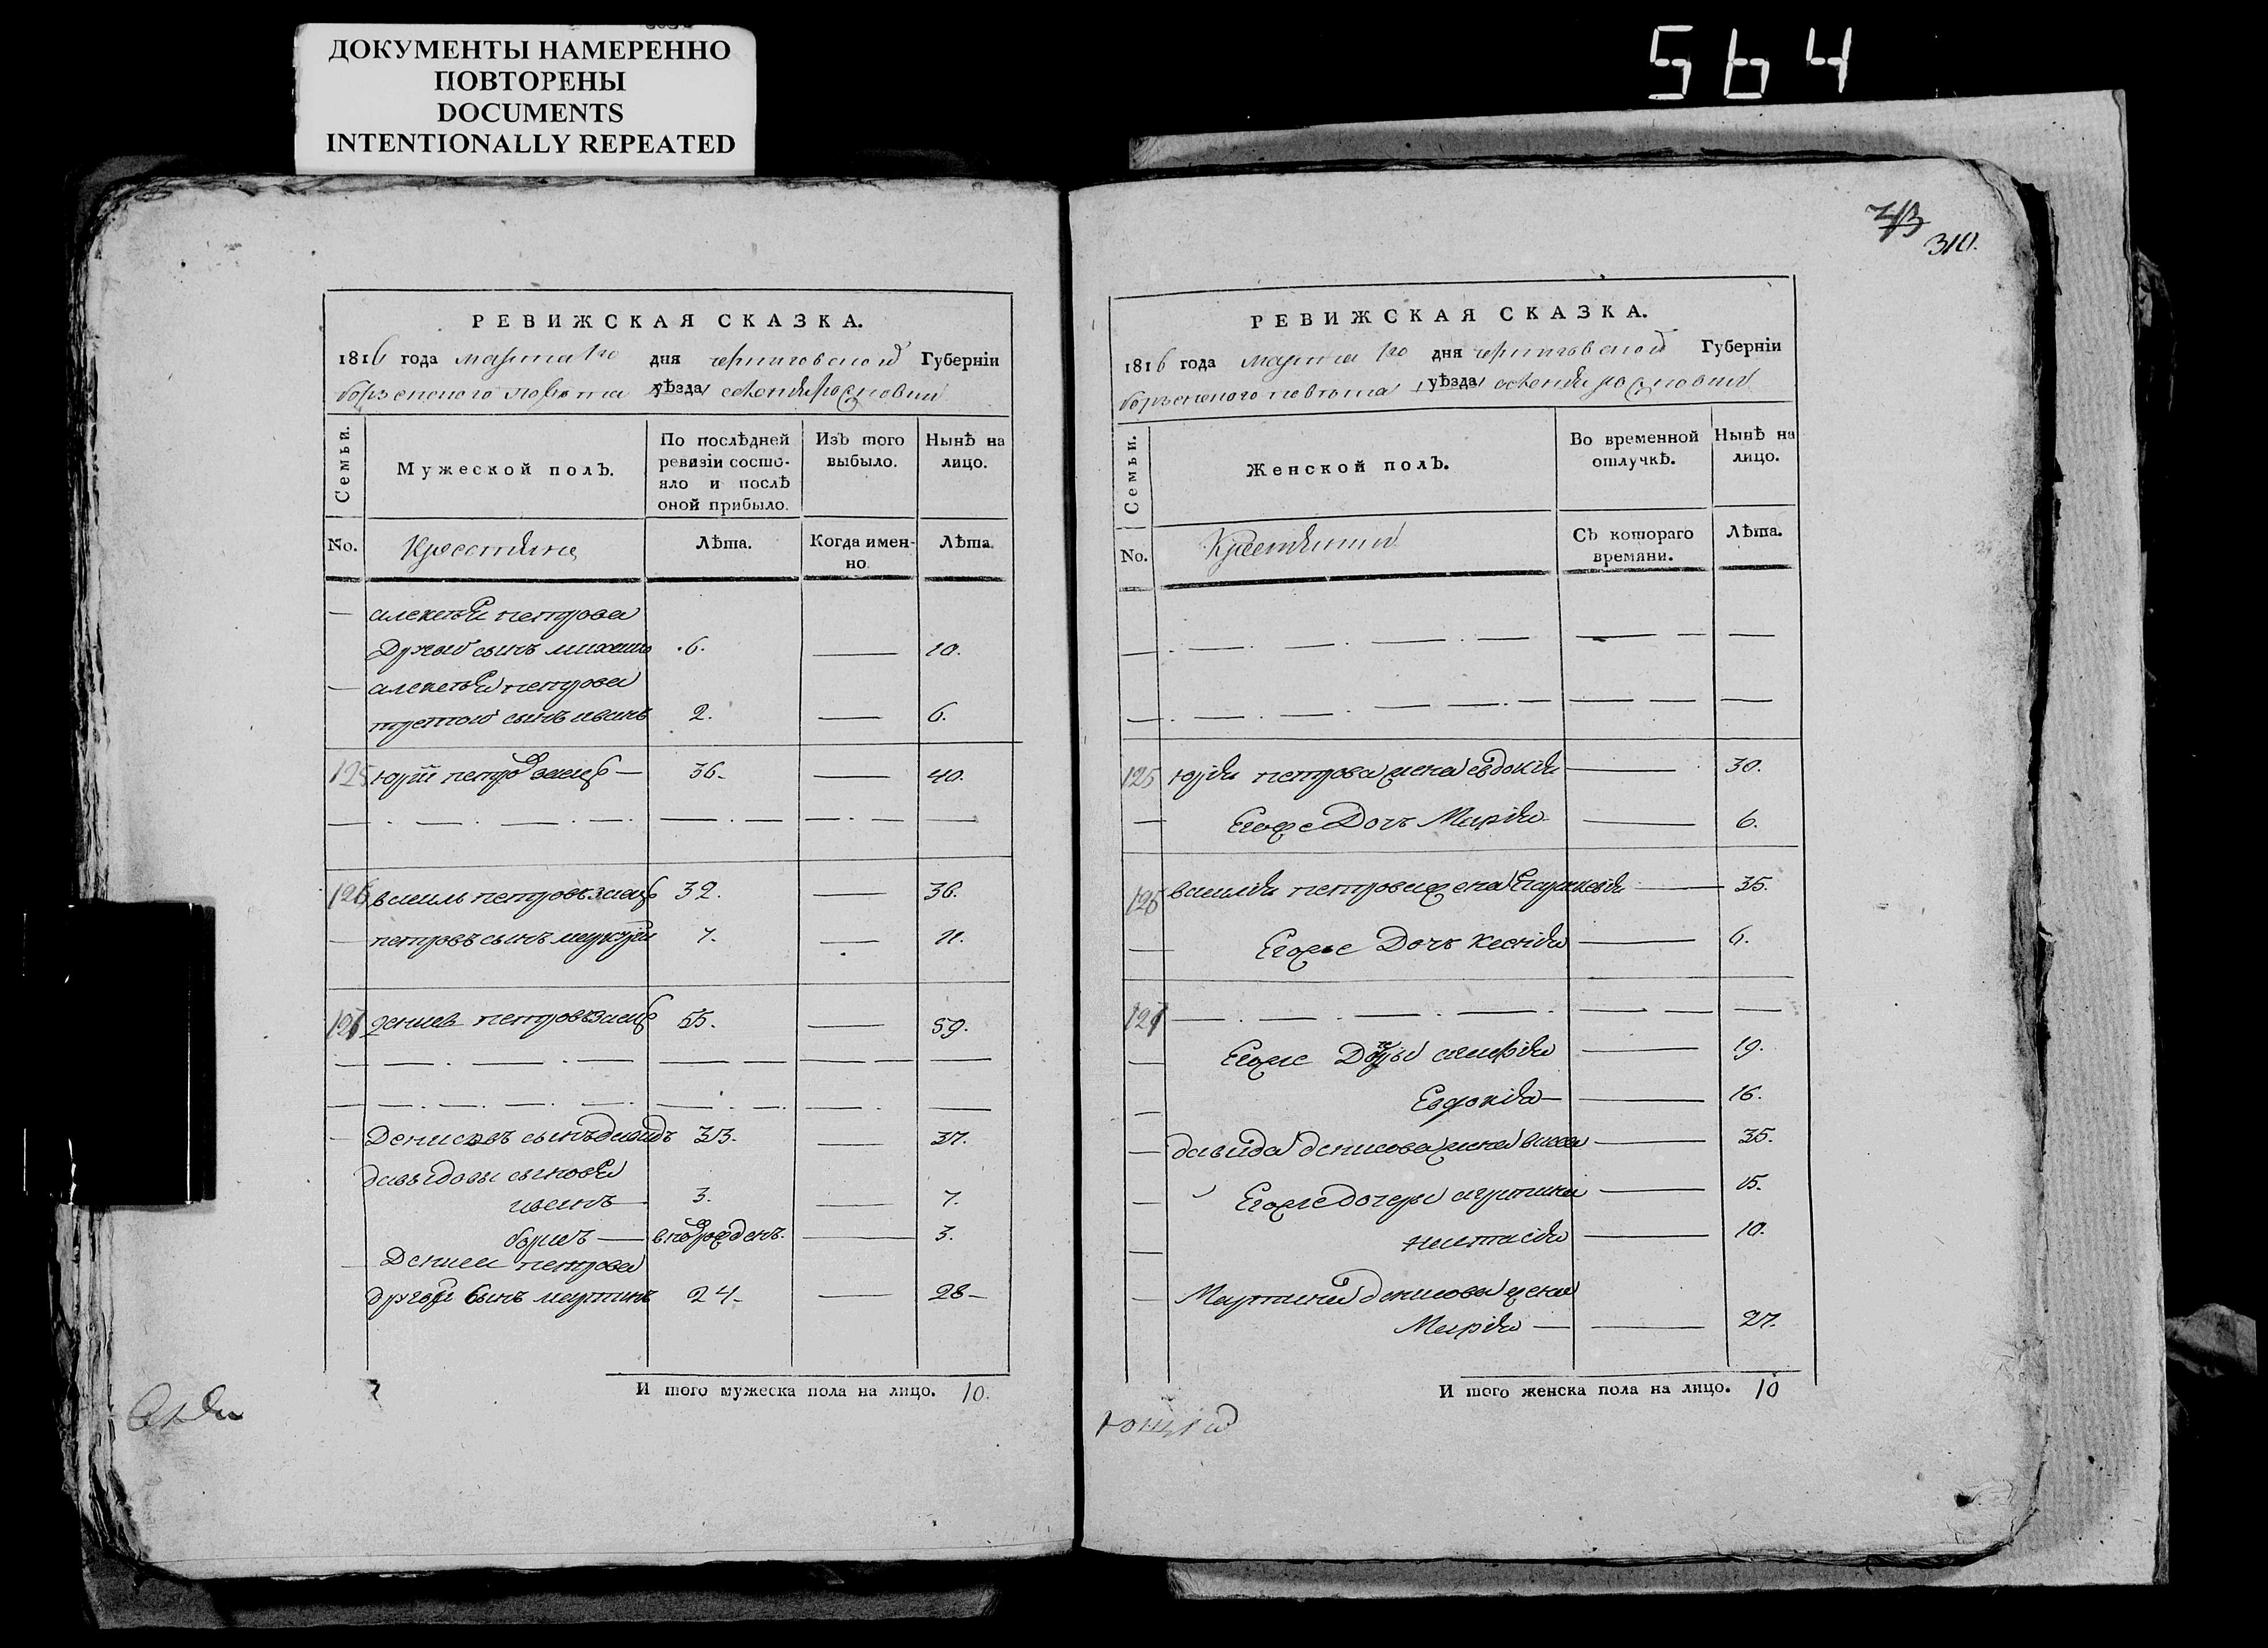 ДОКУМЕНТЫ НАМЕРЕННО
ПОВТОРЕНЫ
DOCUMENTS
INTENTIONALLY REPEATED
564
310.
РЕВИЖСКАЯ СКАЗКА.
1816 года марта 1го дня черниговской Губерніи
борзенского повета уѣзда
Семьи.
Мужеской полъ.
По послѣдней ревизіи состояло и послѣ оной прибыло.
Изъ того выбыло.
Нынѣ на лицо.
No.
Крестяне
Лѣта.
Когда именно.
Лѣта.
алексѣя петрова
другой сынъ михаило 6. 10.
алексѣя петрова
третой сынъ иванъ 2. 6.
125 юрій петровъ заецъ 36. 40.
126 василь петровъ заецъ 32. 36.
петровъ сынъ 7. 11.
127 денисъ петровъ заецъ 55. 59.
Денисовъ сынъ давидъ 33. 37.
давыдовы сыновя
иванъ 3. 7.
борисъ 3.
Дениса петрова
другой сынъ мартинъ 24. 28
И того мужеска пола на лицо. 10.
РЕВИЖСКАЯ СКАЗКА.
1816 года марта 1го дня черниговской Губерніи
борзенского повета уѣзда
Семьи.
Женской полъ.
Во временной отлучкѣ.
Нынѣ на лицо.
No.
Крестянки
Съ котораго времяни.
Лѣта.
125 юрія петрова жена евдокія 30.
Егоже Дочъ Марія 6.
126 василія петрова жена 35.
Егоже Дочъ ксенія 6.
127
Егоже 19.
Евдокія 16.
давида денисова жена васса 35.
Егоже дочеры 15.
настасія 10.
Мартина денисова жена
Марія 27.
И того женска пола на лицо. 10